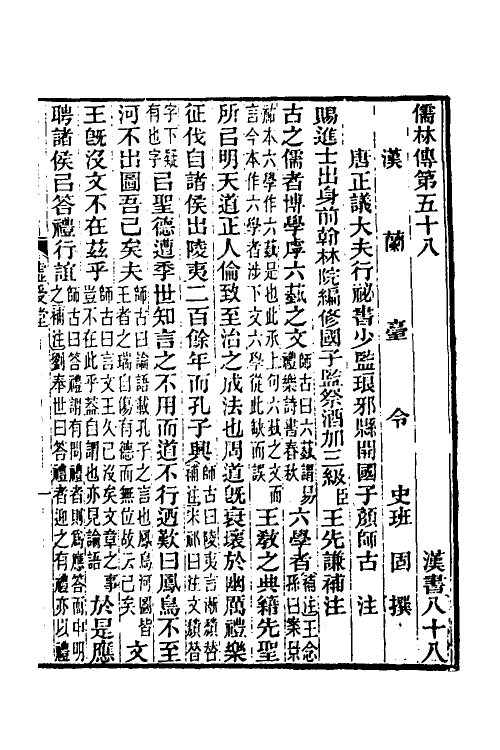 儒林傳第五十八　漢書八十八
漢蘭臺令史班固撰
唐正議大夫行祕書少監琅邪縣開國子顏師古注
賜進士出身前翰林院編修國子監祭酒加三級臣王先謙補注
古之儒者博學虖六藝之文師古曰六藝謂易禮樂詩書春秋六學者補注王念孫曰案景
祐本六學作六藝是也此承上句六藝之文而言今本作六學者涉下文六學從此缺而誤王敎之典籍先聖
所㠯明天道正人倫致至治之成法也周道旣衰壞於幽厲禮樂
征伐自諸侯出陵夷二百餘年而孔子興師古曰陵夷言漸頽替補注宋祁曰注文頽替
字下疑有也字㠯聖德遭季世知言之不用而道不行迺歎曰鳳鳥不至
河不出圖吾已矣夫師古曰論語載孔子之言也鳳鳥河圖皆王者之瑞自傷有德而無位故云已矣文
王旣沒文不在茲乎師古曰言文王久已沒矣文章之事豈不在此乎蓋自謂也亦見論語於是應
聘諸侯㠯答禮行誼師古曰答禮謂有問禮者則爲應答而申明之補注劉奉世曰答禮者迎之有禮亦以禮
虛受堂